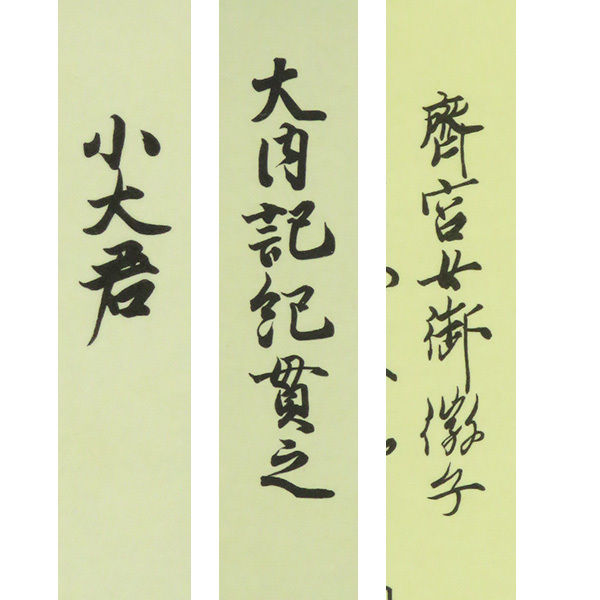 小大君
大内記紀貫之
齊宮女御徽子